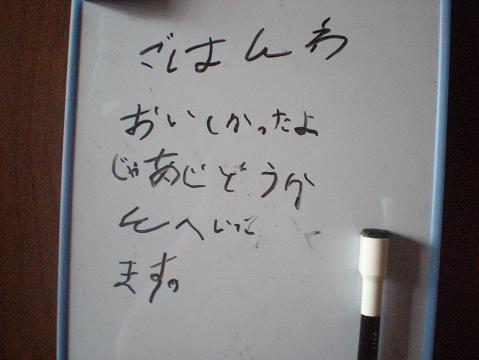 ごはんわ
おいしかったよ
じゃあじどうか
んへいって
ます。